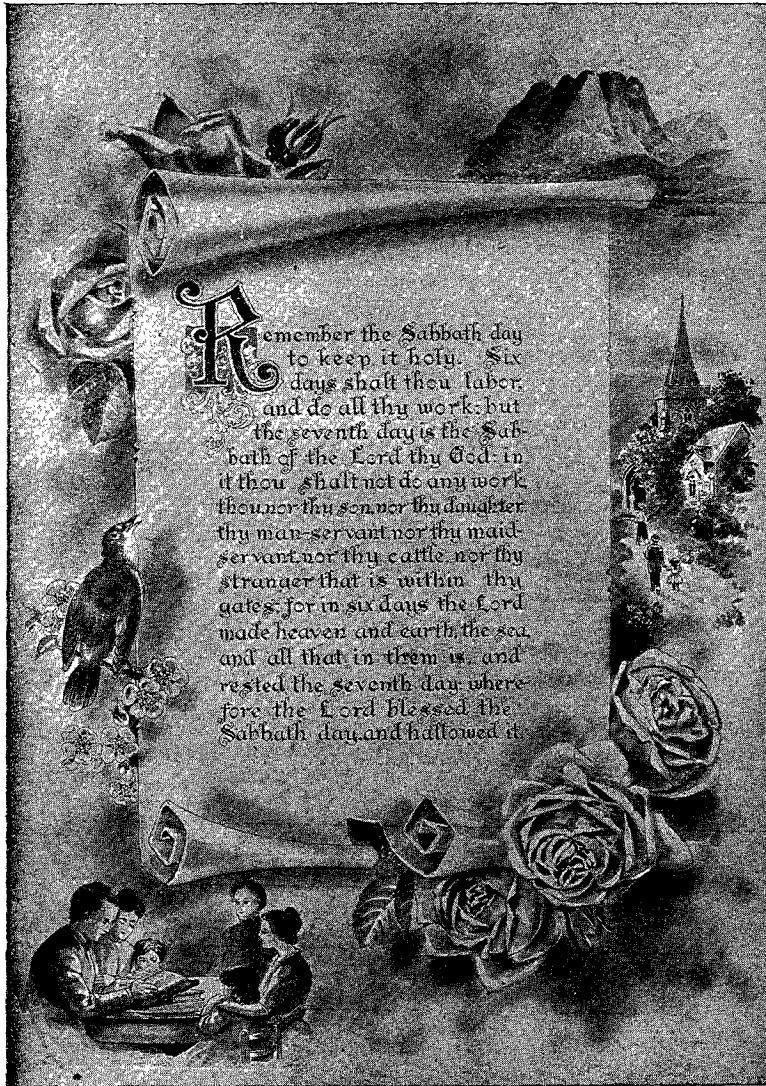 Remember the Sabbath day
to keep it holy. Six
days shalt thou labor,
and do all thy work: but
the seventh day is the Sab-
bath of the Lord thy God: in
it thou shalt not do any work,
thou, nor thy son, nor thy daughter,
thy man-servant, nor thy maid-
servant, nor thy cattle, nor thy
stranger that is within thy
gates: for in six days the Lord
made heaven and earth, the sea,
and all that in them is, and
rested the seventh day: where-
fore the Lord blessed the
Sabbath day, and hallowed it.